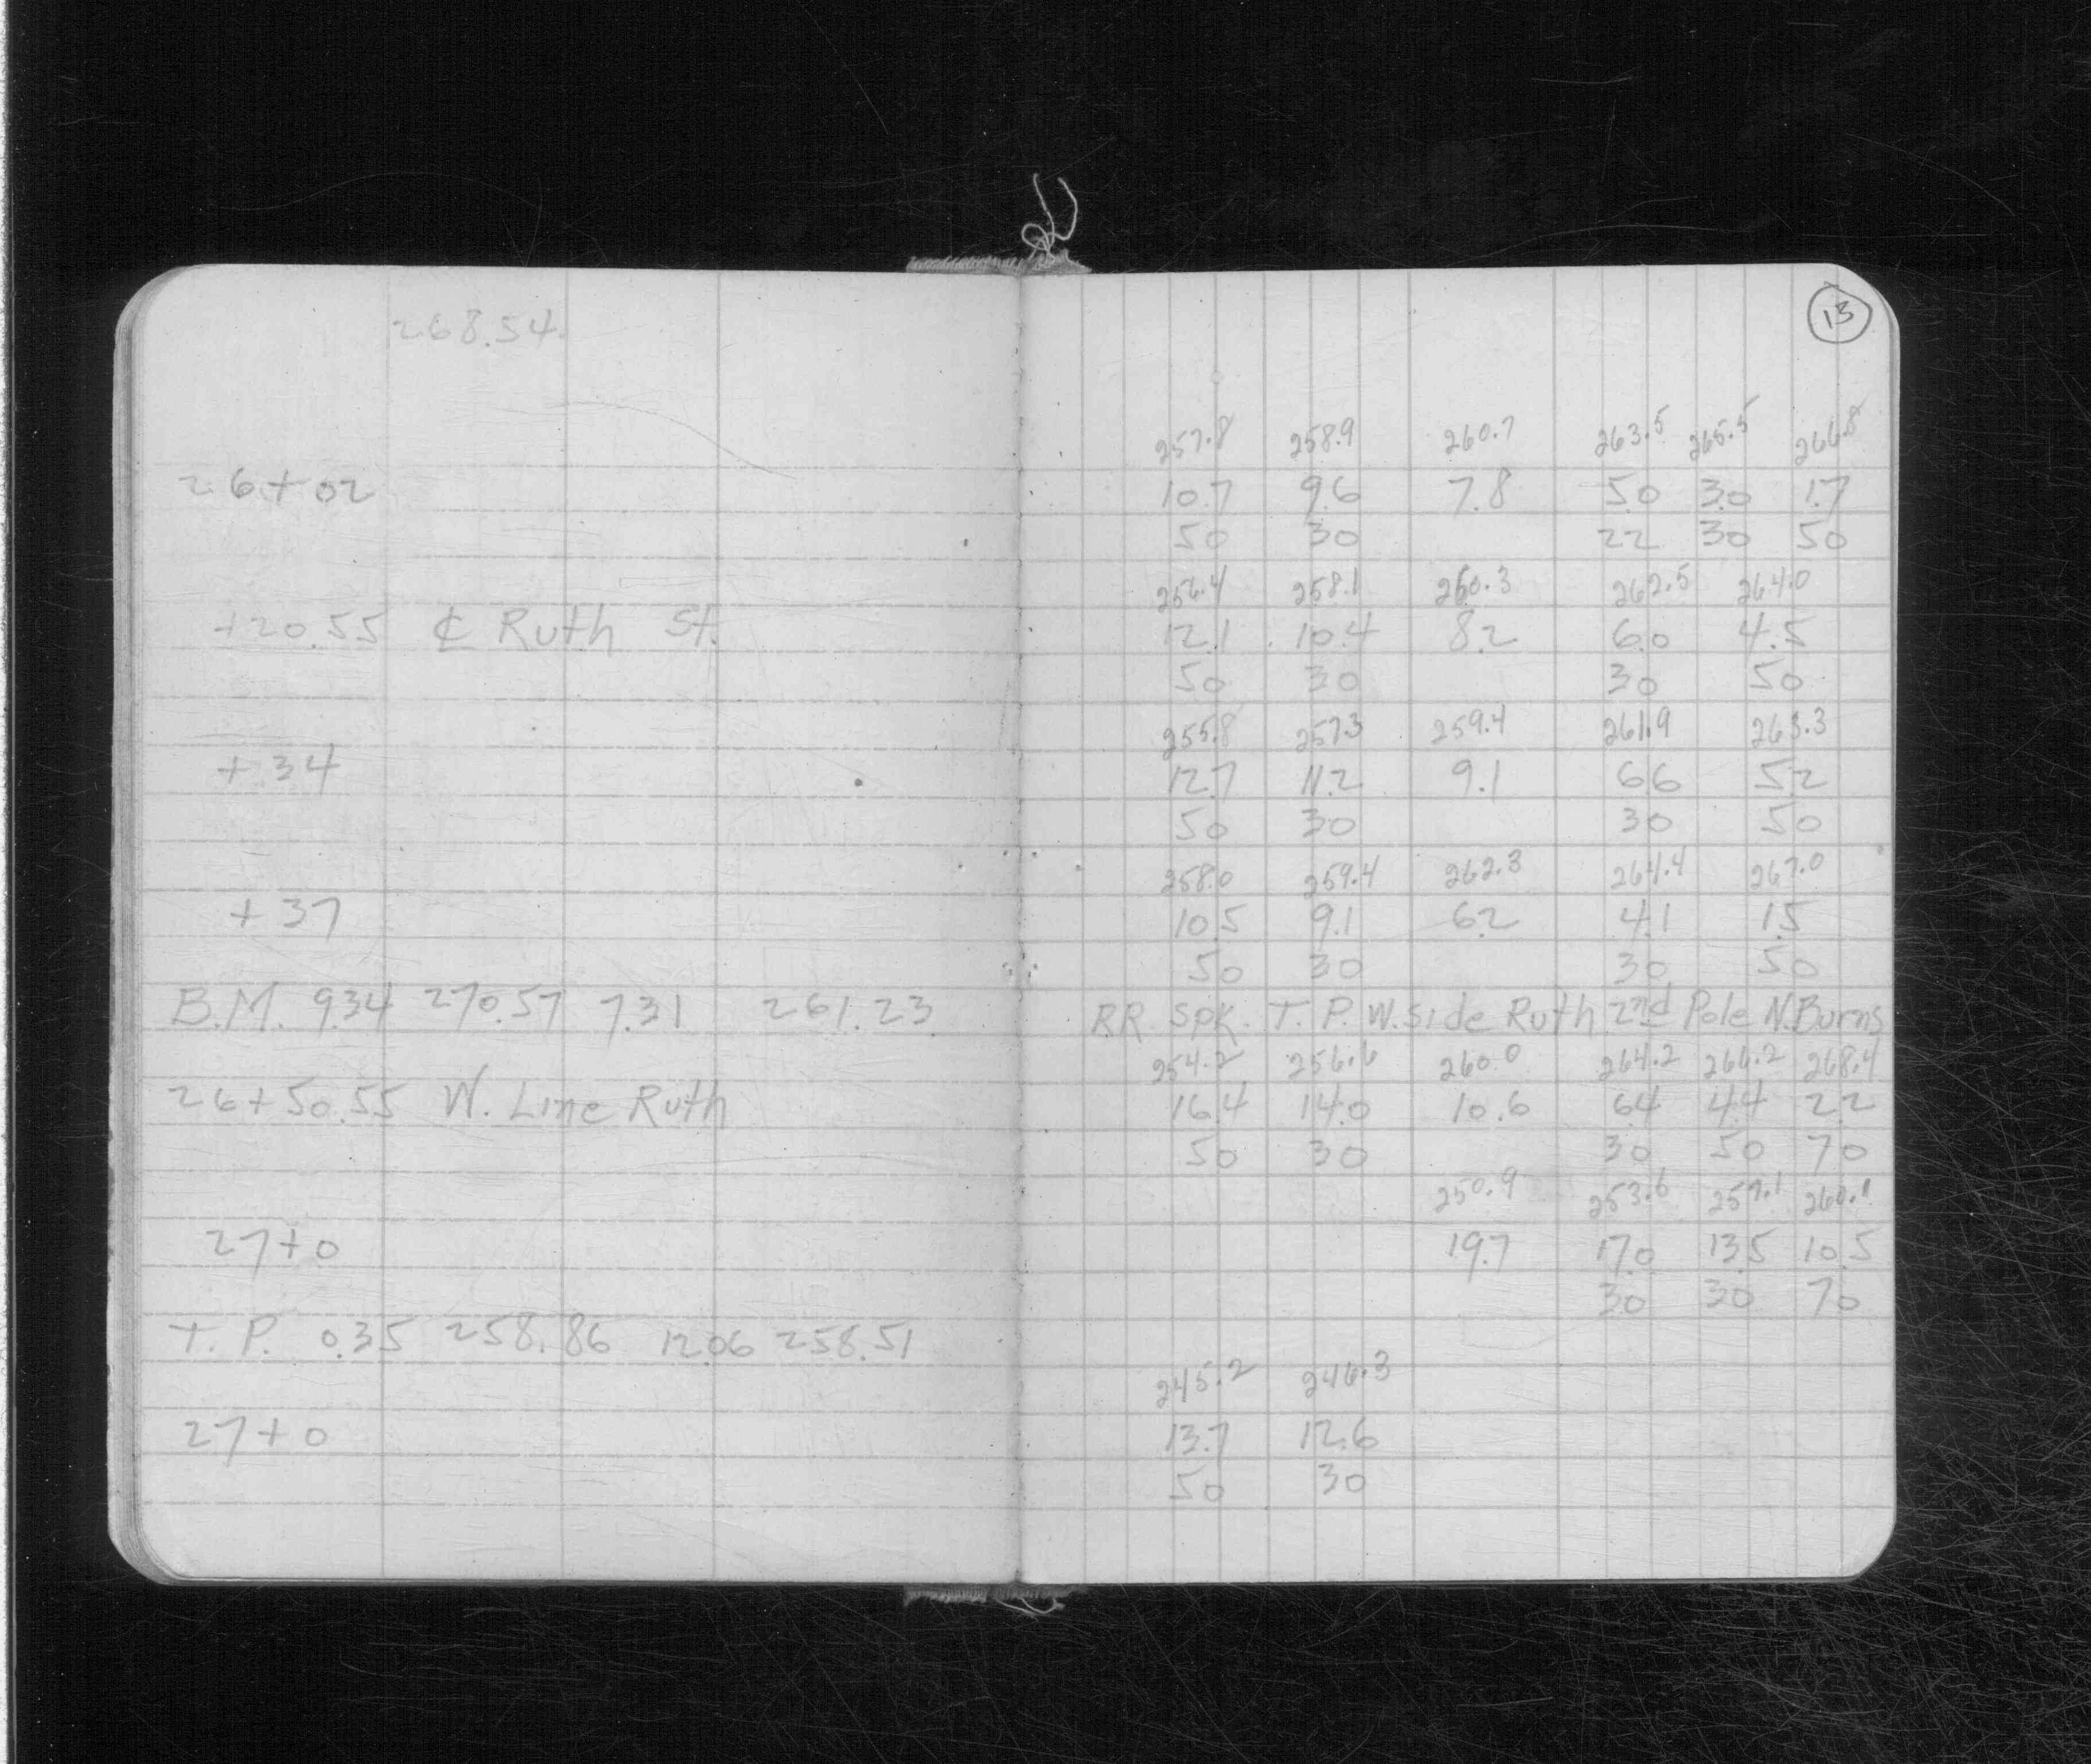 13
268.54
257.8 258.9 260.7 263.5 265.5 266.8
26+02 10.7 9.6 7.8 5.0 3.0 1.7
50 30 22 30 50
256.4 258.1 260.3 262.5 264.0
+20.55 ℄ Ruth St. 12.1 10.4 8.2 6.0 4.5
50 30 30 50
255.8 257.3 259.4 261.9 263.3
+34 12.7 11.2 9.1 6.6 5.2
50 30 30 50
258.0 259.4 262.3 264.4 267.0
+37 10.5 9.1 6.2 4.1 1.5
50 30 30 50
B.M. 9.34 270.57 7.31 261.23 RR Spk. T. P. W. Side Ruth 2nd Pole N. Burns
254.2 256.6 260.0 264.2 266.2 268.4
26+50.55 W. Line Ruth 16.4 14.0 10.6 6.4 4.4 2.2
50 30 30 50 70
250.9 253.6 257.1 260.1
27+0 19.7 17.0 13.5 10.5
30 30 70
T. P. 0.35 258.86 12.06 258.51
245.2 246.3
27+0 13.7 12.6
50 30